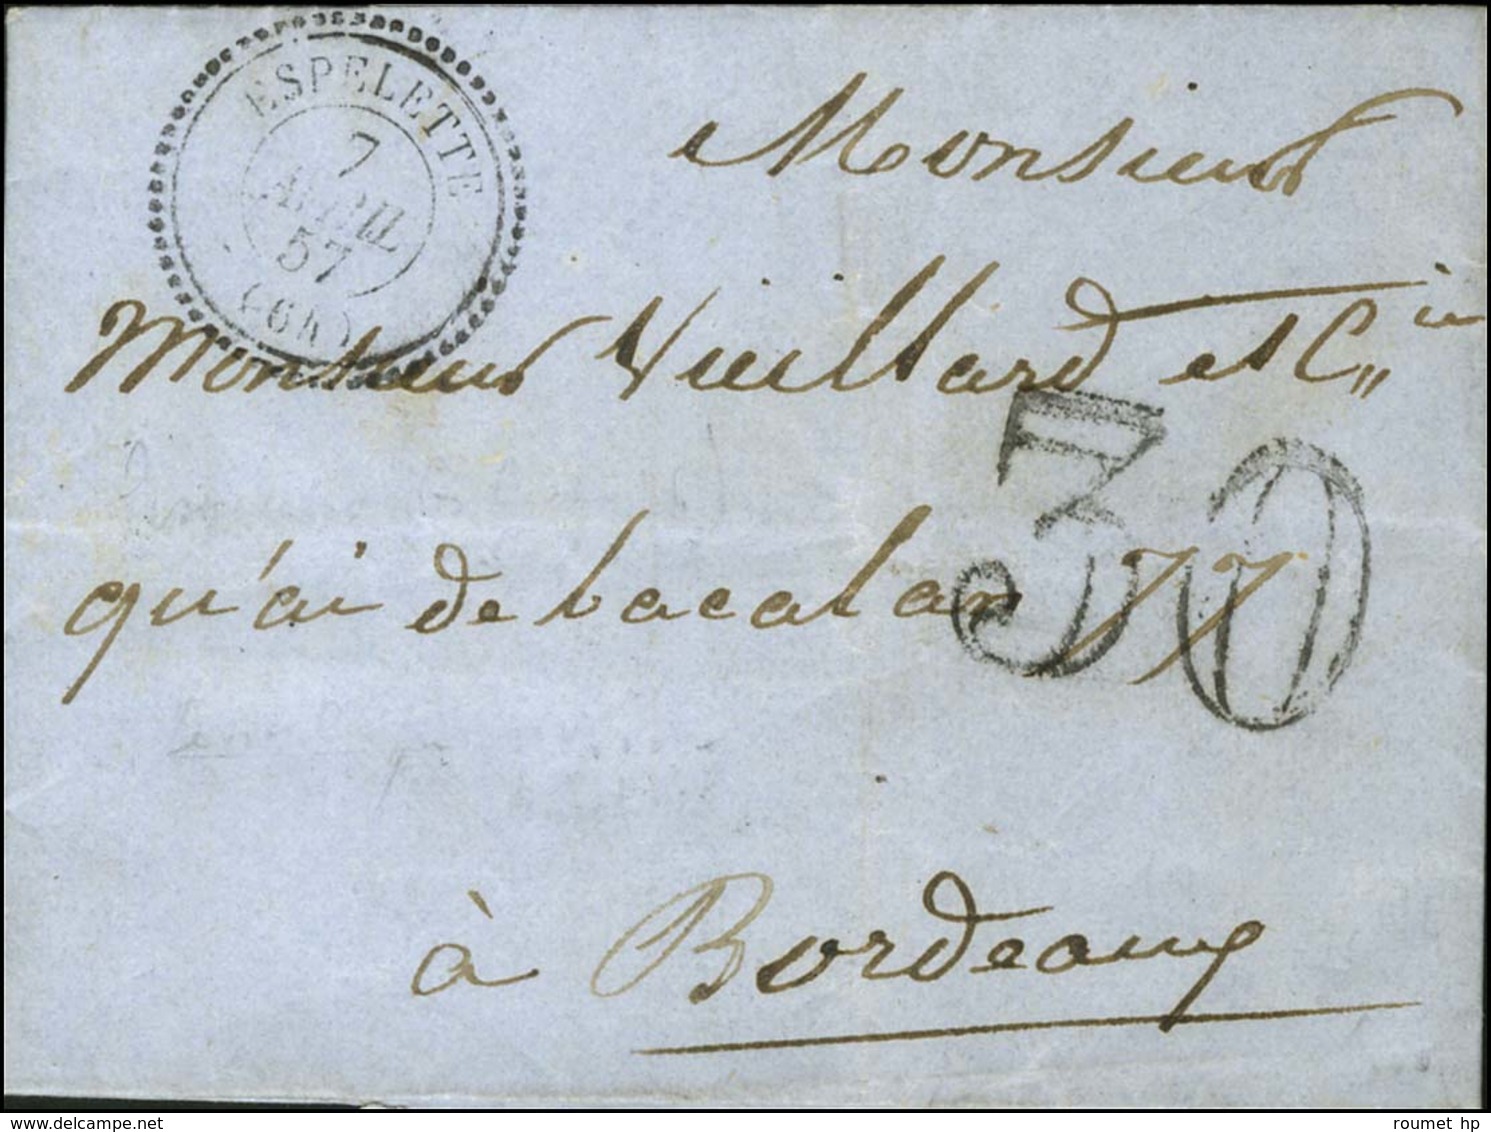 ESPELETTE
7
AVRIL
57
(64)
Monsieur
Monsieur Vieillard et Cie
qu'ai de bacalan 77
30
à Bordeaux
www.delcampe.net
roumet hp